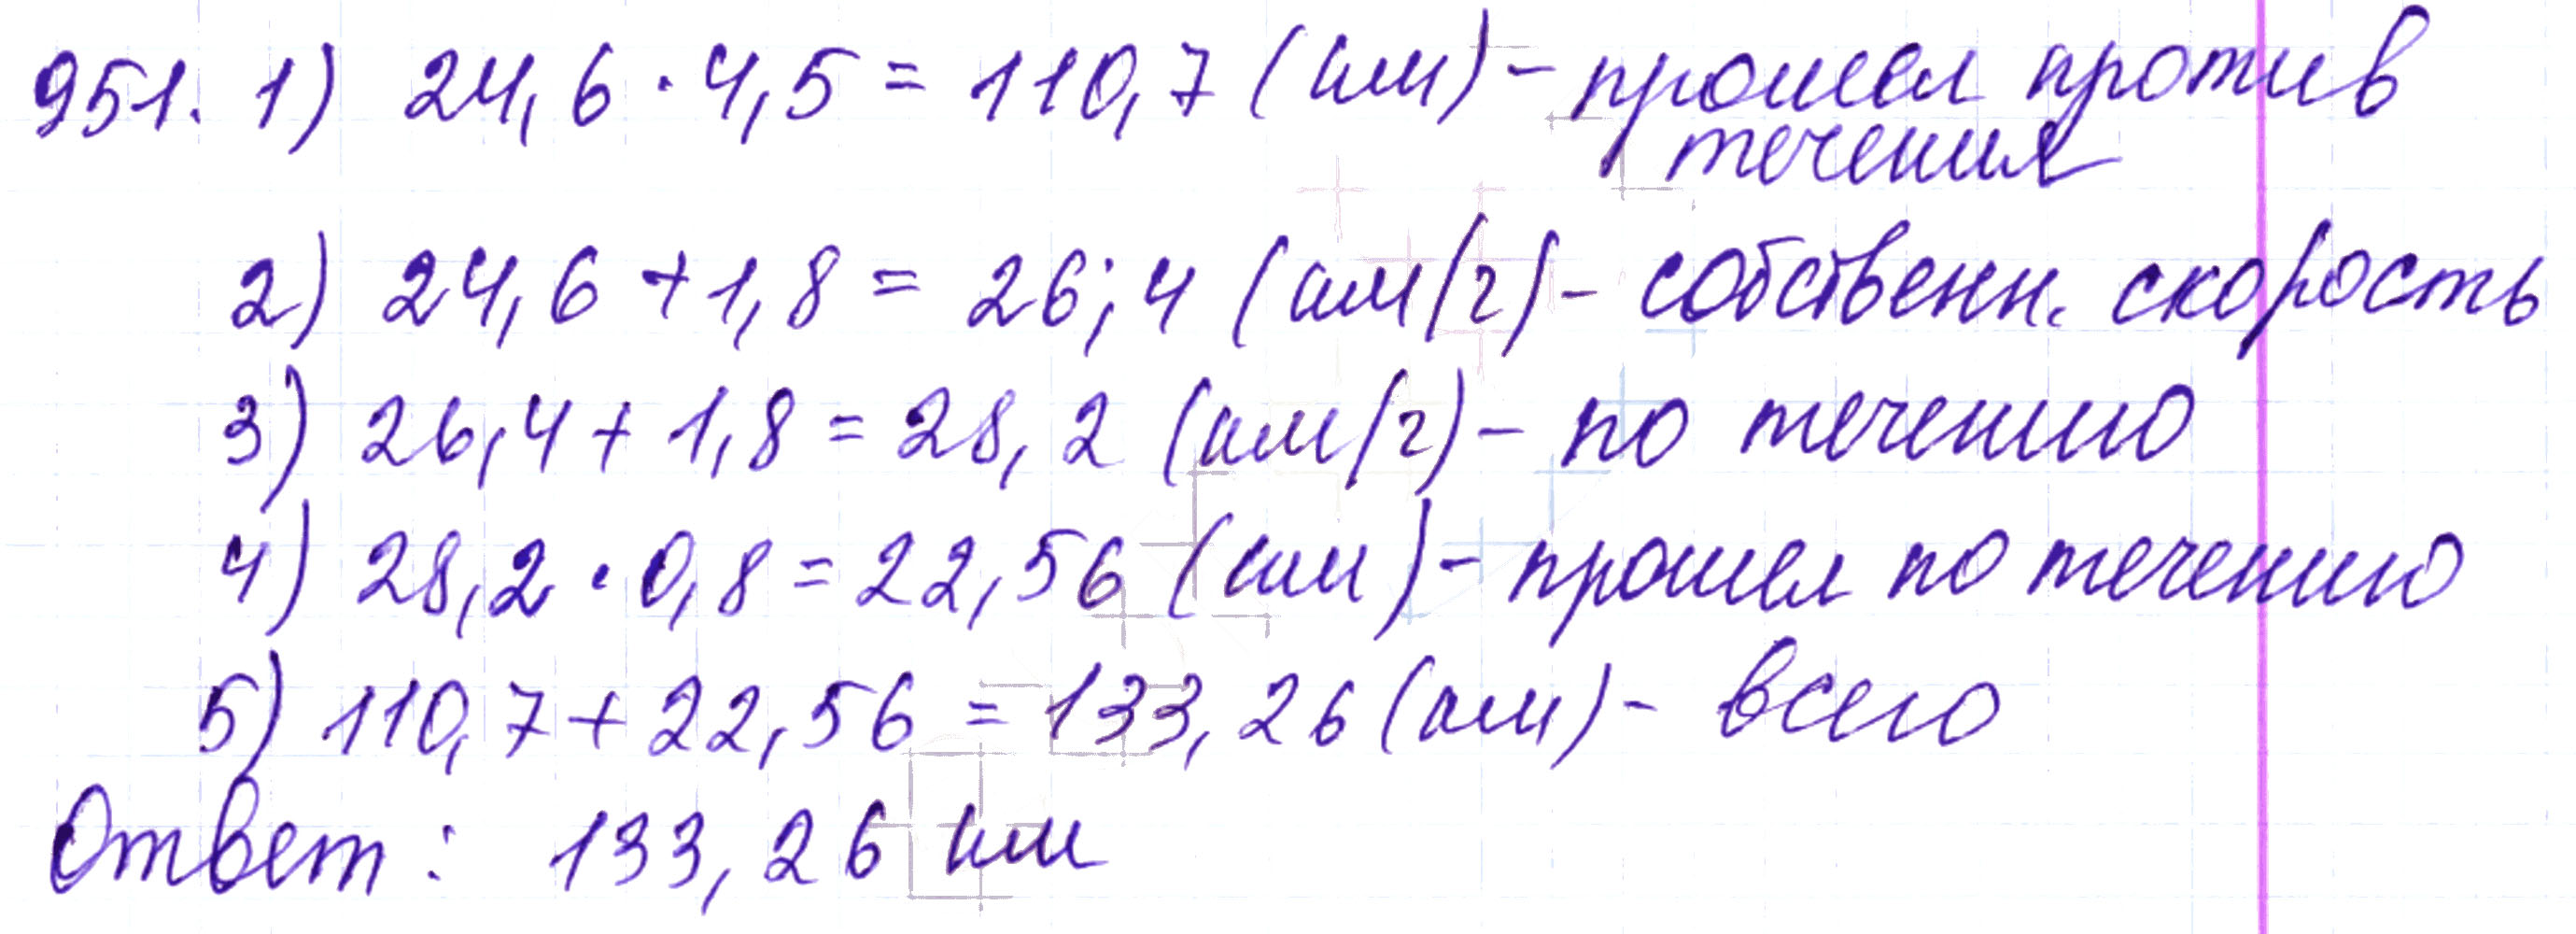 951. 1) 24,6 · 4,5 = 110,7 (км) - прошел против
течения
2) 24,6 + 1,8 = 26,4 (км/г) - собственн. скорость
3) 26,4 + 1,8 = 28,2 (км/г) - по течению
4) 28,2 · 0,8 = 22,56 (км) - прошел по течению
5) 110,7 + 22,56 = 133,26 (км) - всего
Ответ: 133,26 км